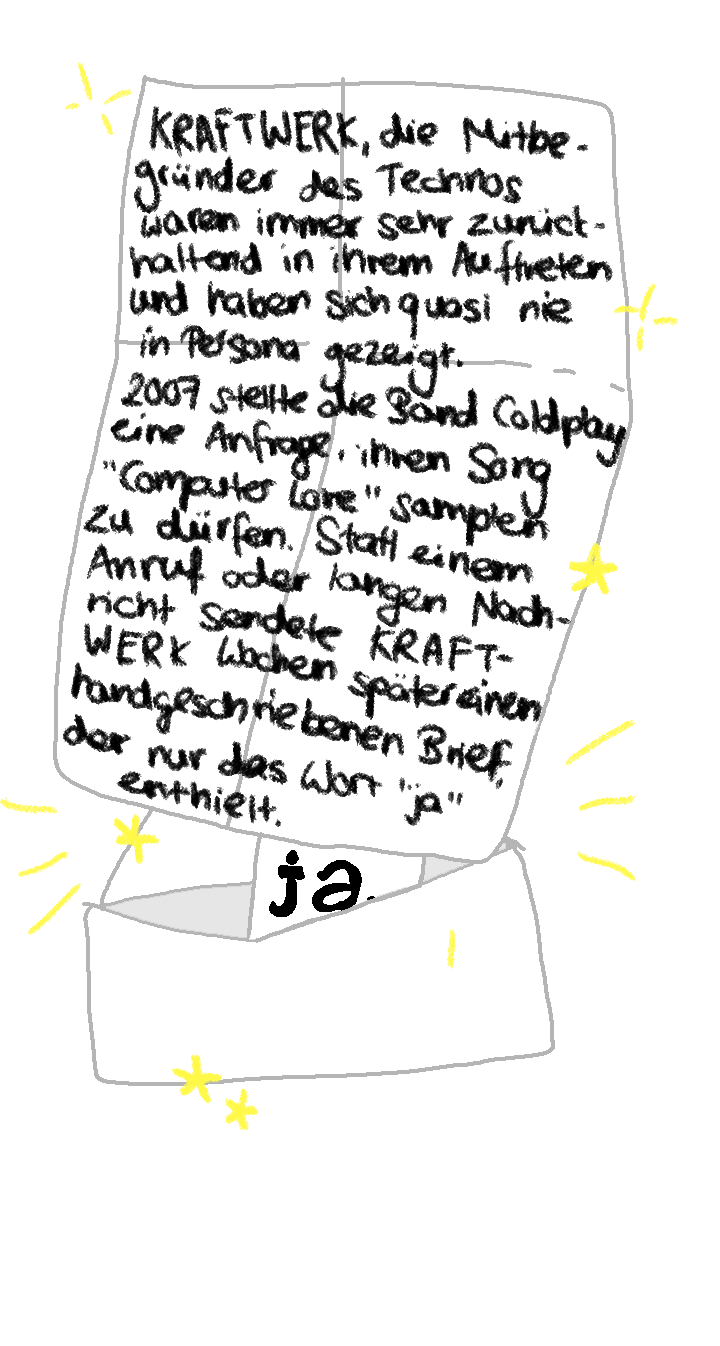 KRAFTWERK, die Mitbe-
gründer des Technos
waren immer sehr zurück-
haltend in ihrem Auftreten
und haben sich quasi nie
in Persona gezeigt.
2007 stellte die Band Coldplay
eine Anfrage, ihren Song
"Computer Love" samplen
zu dürfen. Statt einem
Anruf oder langen Nach-
richt sendete KRAFT-
WERK Wochen später einen
handgeschriebenen Brief,
der nur das Wort "ja"
enthielt.
ja.